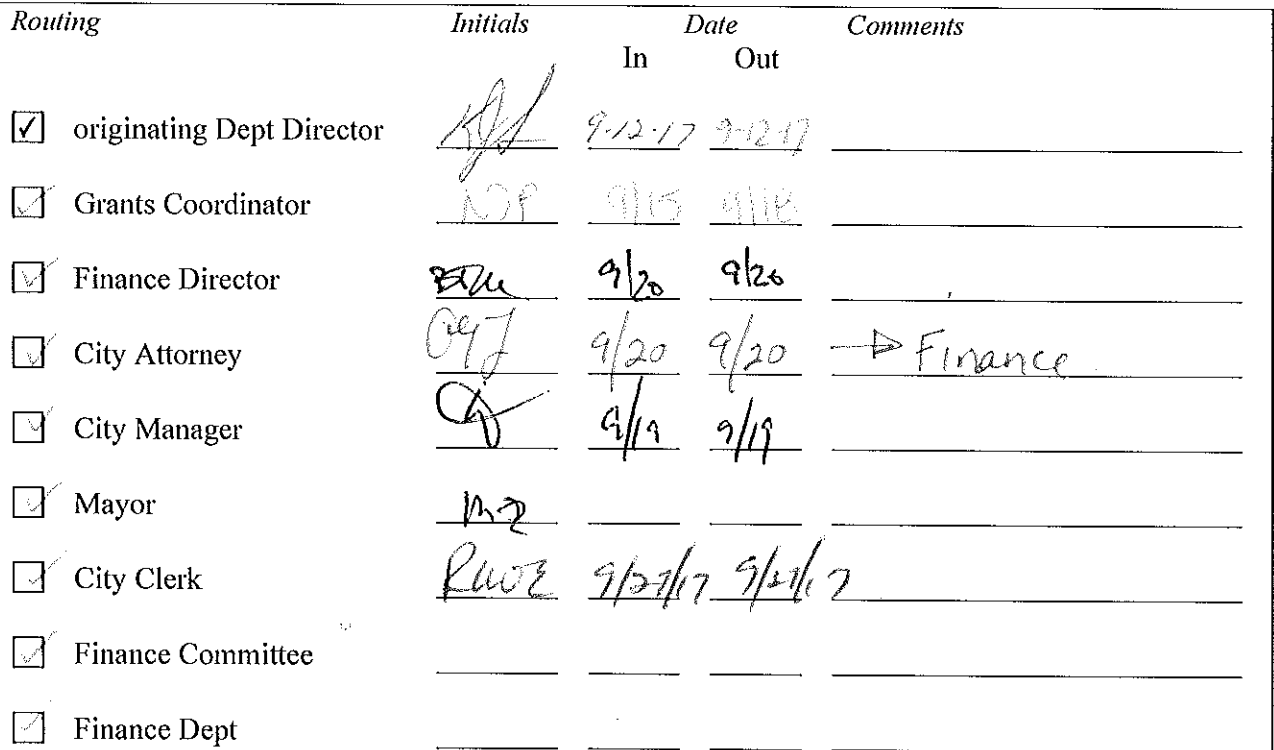 Routing Initials Date Comments
In Out
originating Dept Director 9-12-17 9-12-17
Grants Coordinator 9/15 9/18
Finance Director 9/20 9/20
City Attorney 9/20 9/20 → Finance
City Manager 9/19 9/19
Mayor
City Clerk 9/27/17 9/27/17
Finance Committee
Finance Dept